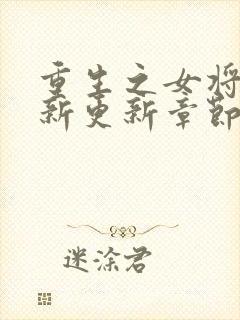 重生之女将
新更新章節
迷涂君